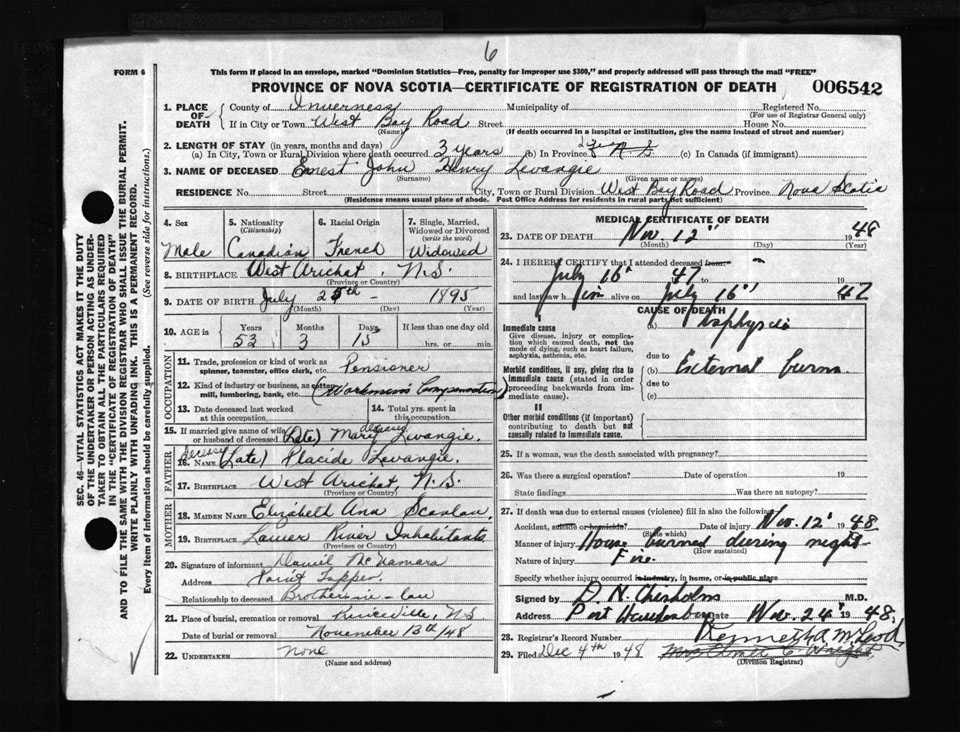 6
FORM 6
This form if placed in an envelope, marked "Dominion Statistics—Free, penalty for improper use $300," and properly addressed will pass through the mail "FREE"
PROVINCE OF NOVA SCOTIA—CERTIFICATE OF REGISTRATION OF DEATH 006542
SEC. 46—VITAL STATISTICS ACT MAKES IT THE DUTY
OF THE UNDERTAKER OR PERSON ACTING AS UNDER-
TAKER TO OBTAIN ALL THE PARTICULARS REQUIRED
IN THE "CERTIFICATE OF REGISTRATION OF DEATH"
AND TO FILE THE SAME WITH THE DIVISION REGISTRAR WHO SHALL ISSUE THE BURIAL PERMIT.
WRITE PLAINLY WITH UNFADING INK. THIS IS A PERMANENT RECORD.
Every item of information should be carefully supplied. (See reverse side for instructions.)
1. PLACE OF DEATH County of Inverness Municipality of Registered No.
(For use of Registrar General only)
If in City or Town West Bay Road Street House No.
(Name) (If death occurred in a hospital or institution, give the name instead of street and number)
2. LENGTH OF STAY (in years, months and days)
(a) In City, Town or Rural Division where death occurred 3 years (b) In Province (c) In Canada (if immigrant)
3. NAME OF DECEASED Ernest John Henry Levangie
(Surname) (Given name or names)
RESIDENCE No. Street City, Town or Rural Division West Bay Road Province Nova Scotia
(Residence means usual place of abode. Post Office Address for residents in rural parts not sufficient)
4. Sex 5. Nationality (Citizenship) 6. Racial Origin 7. Single, Married, Widowed or Divorced (write the word)
Male Canadian French Widowed
8. BIRTHPLACE West Arichat, N.S.
(Province or Country)
9. DATE OF BIRTH July 25th - 1895
(Month) (Day) (Year)
10. AGE in Years Months Days If less than one day old
53 3 hrs. or min.
OCCUPATION
11. Trade, profession or kind of work as spinner, teamster, office clerk, etc. Pensioner
12. Kind of industry or business, as cotton mill, lumbering, bank, etc. (Workmen's Compensation)
13. Date deceased last worked at this occupation
14. Total yrs. spent in this occupation
15. If married give name of wife or husband of deceased (Late) Mary Levangie.
FATHER
16. Name (Late) Placide Levangie.
17. BIRTHPLACE West Arichat, N.S.
(Province or Country)
MOTHER
18. MAIDEN NAME Elizabeth Ann Scanlan
19. BIRTHPLACE Lower River Inhabitants
(Province or Country)
20. Signature of informant Daniel McNamara
Address Point Tupper
Relationship to deceased Brother-in-law
21. Place of burial, cremation or removal Princeville, N.S.
Date of burial or removal November 13th/48
22. UNDERTAKER None
(Name and address)
MEDICAL CERTIFICATE OF DEATH
23. DATE OF DEATH Nov. 12" 1948
(Month) (Day) (Year)
24. I HEREBY CERTIFY that I attended deceased from
July 16" 47
and last saw him alive on July 16" 1947
CAUSE OF DEATH
Immediate cause
Give disease, injury or complication which caused death, not the mode of dying, such as heart failure, asphyxia, asthenia, etc.
(a) Asphyxia
due to
Morbid conditions, if any, giving rise to immediate cause (stated in order proceeding backwards from immediate cause).
(b) External burns
due to
(c)
II
Other morbid conditions (if important) contributing to death but not causally related to immediate cause.
25. If a woman, was the death associated with pregnancy?
26. Was there a surgical operation? Date of operation 19
State findings Was there an autopsy?
27. If death was due to external causes (violence) fill in also the following:
Accident, suicide or homicide? Date of injury Nov. 12" 1948
(State which)
Manner of injury House burned during night
(How sustained)
Nature of injury Fire.
Specify whether injury occurred in industry, in home, or in public place
Signed by D. N. Chisholm M.D.
Address Port Hawkesbury Date Nov. 24" 1948
28. Registrar's Record Number
Kenneth A McLeod
29. Filed Dec 4th 1948 Mrs. C. Wright
(Division Registrar)